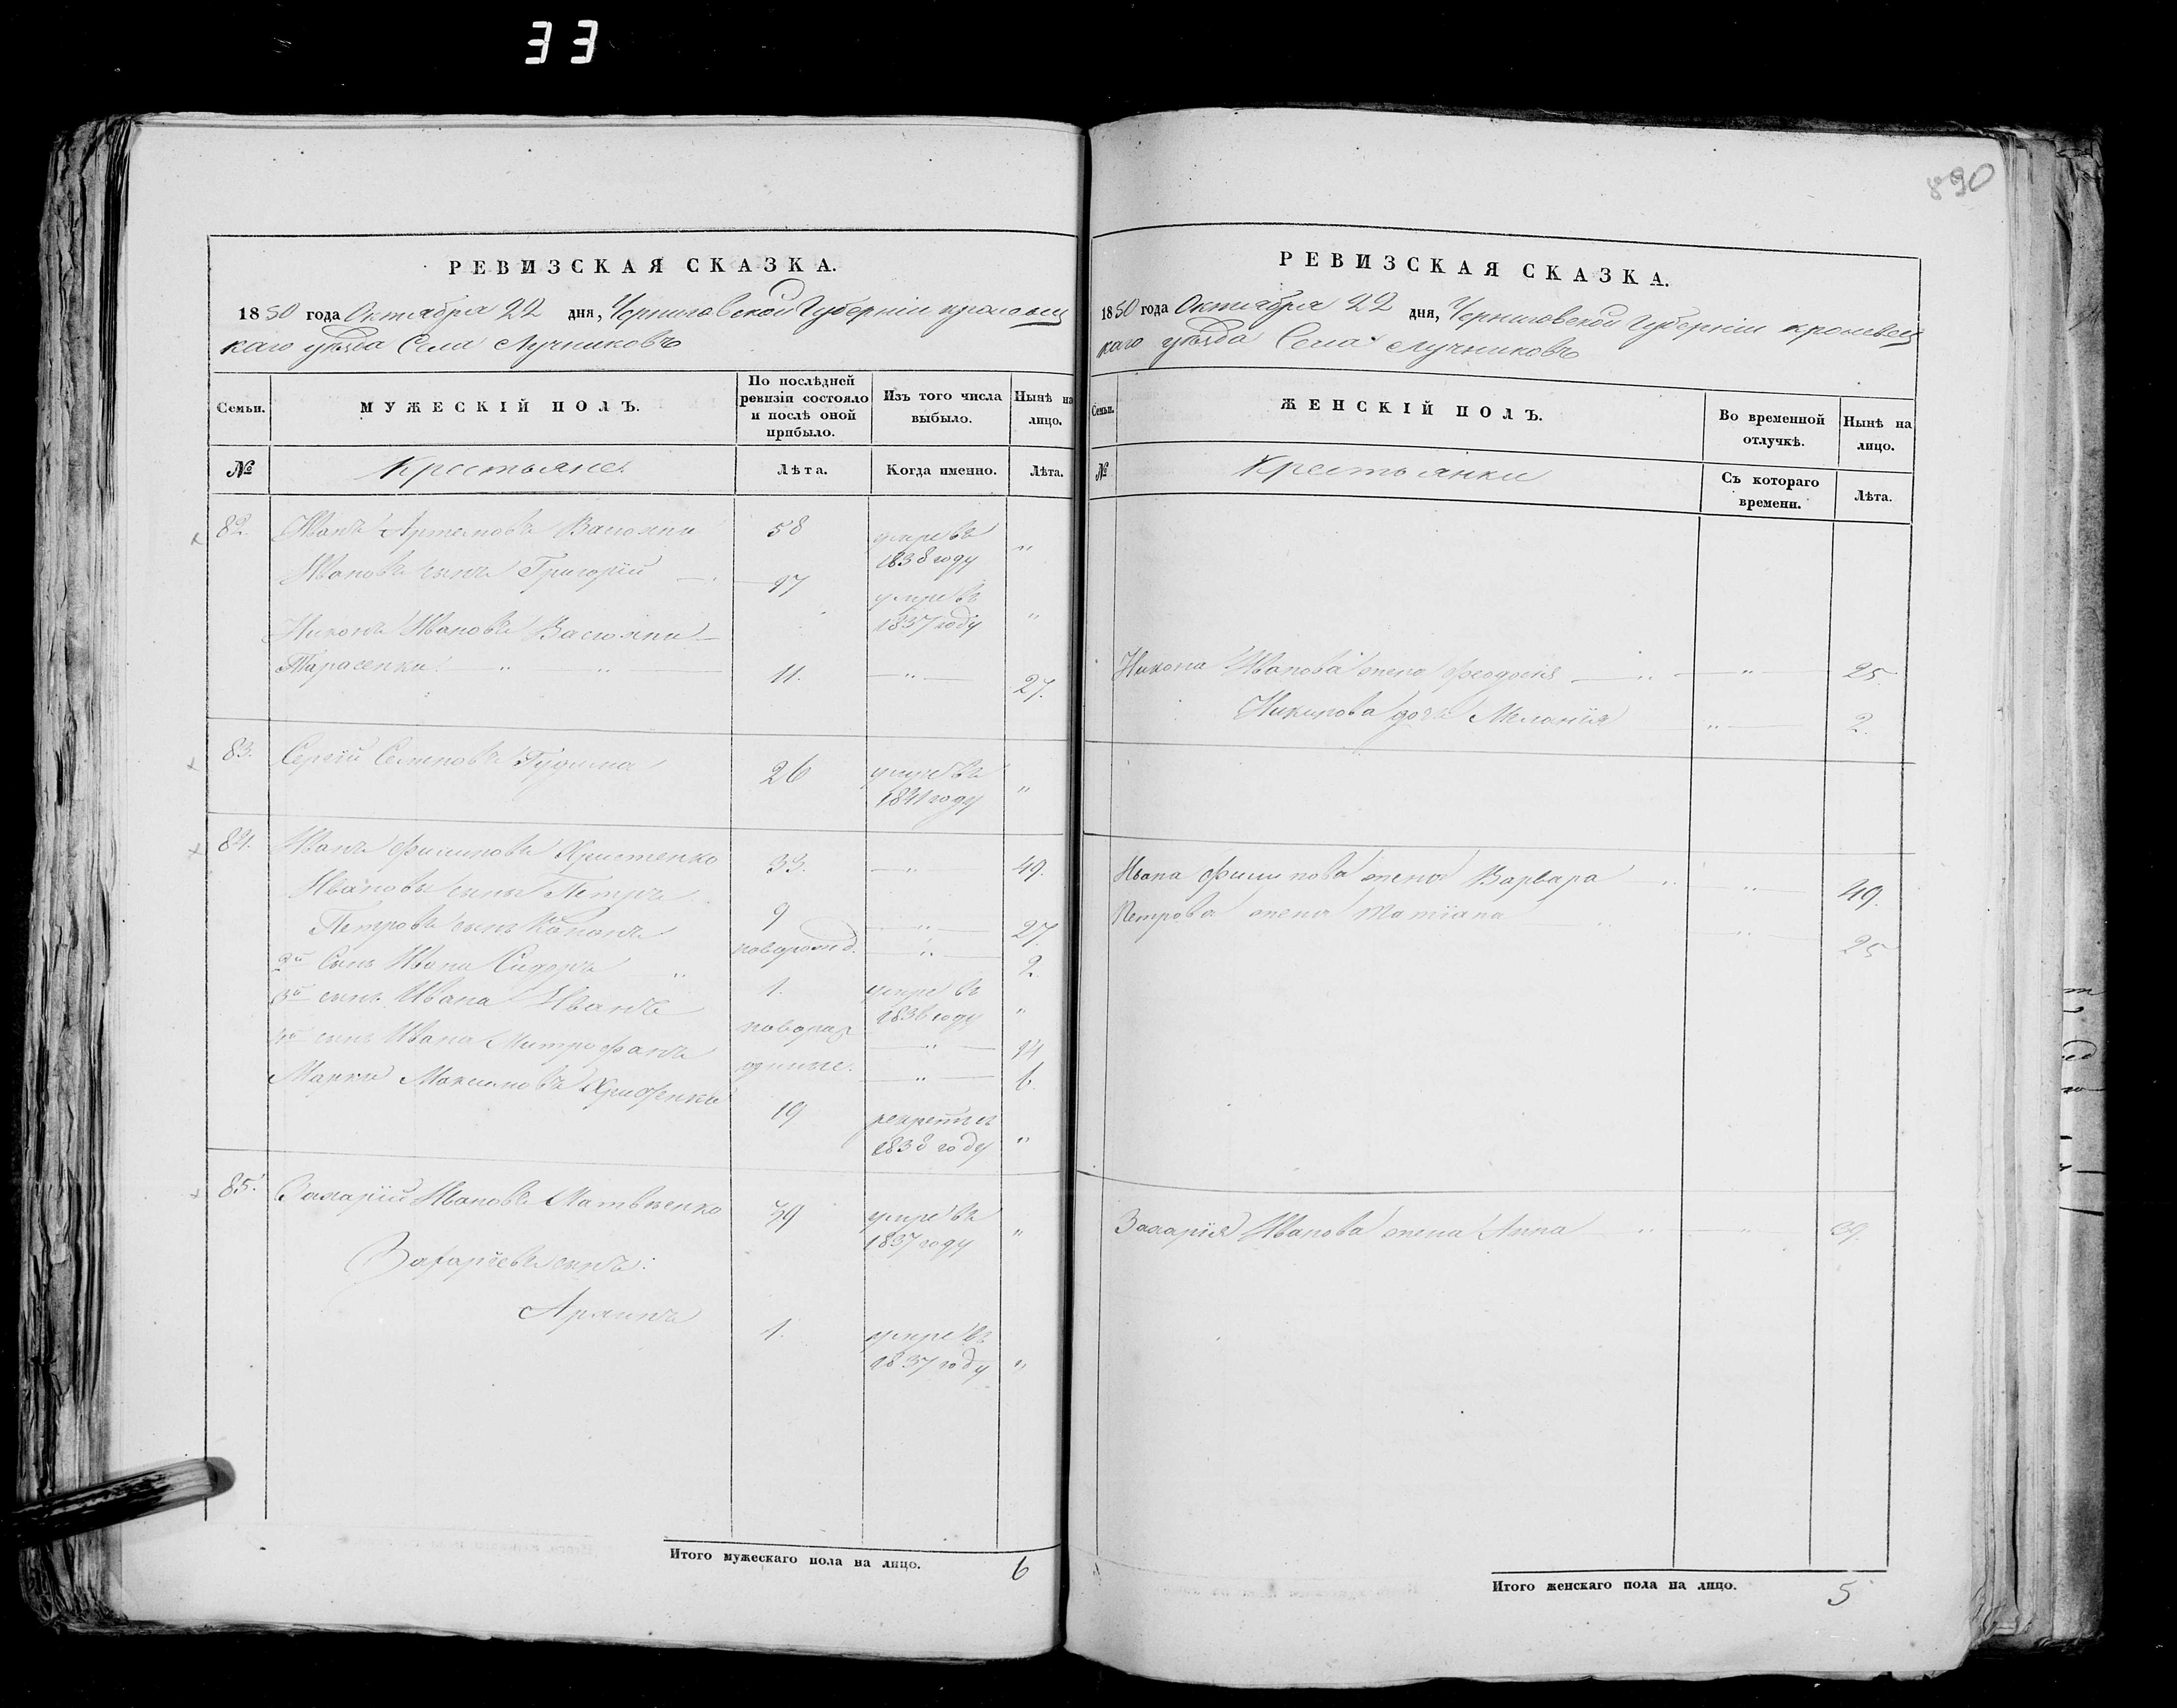 33
890
РЕВИЗСКАЯ СКАЗКА.
1850 года Октября 22 дня, Черниговской Губерніи кролевец
каго уѣзда Села Лучниковъ
Семьи.
МУЖЕСКІЙ ПОЛЪ.
По послѣдней ревизіи состояло и послѣ оной прибыло.
Изъ того числа выбыло.
Нынѣ на лицо.
№
Крестьяне
Лѣта.
Когда именно.
Лѣта.
82. Иванъ Артемовъ 58 умре въ 1838 году "
Ивановъ сынъ Григорій 17 умре въ 1837 году "
Никонъ Ивановъ
Тарасенко " " 11. " 27.
83. Сергій Семеновъ Гудима 26 умре въ 1841 году "
84. Иванъ Филиповъ Христенко 33. " 49.
Ивановы сыны Петръ 9 " 27.
Петровъ сынъ Кононъ новорожд. " 2.
2й Сынъ Ивана Сидоръ 1. умре въ 1836 году "
3й сынъ Ивана Иванъ новорож " 14
4й сынъ Ивана Митрофанъ " 6.
Марко Максимовъ 19 рекрутъ въ 1838 году "
85. Захарій Ивановъ Матвѣенко 39 умре въ 1837 году "
Захаріевъ сынъ:
1. умре въ 1837 году "
Итого мужескаго пола на лицо. 6
РЕВИЗСКАЯ СКАЗКА.
1850 года Октября 22 дня, Черниговской Губерніи кролевец
каго уѣзда Села Лучниковъ
Семьи.
ЖЕНСКІЙ ПОЛЪ.
Во временной отлучкѣ.
Нынѣ на лицо.
№
Крестьянки
Съ котораго времени.
Лѣта.
Никона Иванова жена Феодосія " " 25.
Никонова дочь Меланія " 2.
Ивана Филипова жена Варвара " " 49.
Петрова жена Татіана " 25
Захарія Иванова жена Анна " " 59.
Итого женскаго пола на лицо. 5